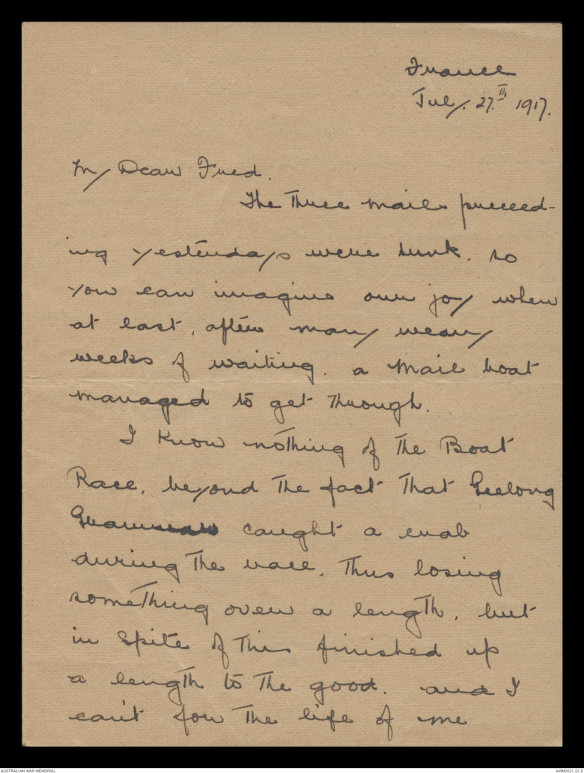 France
July. 27.th 1917.
My Dear Fred.
The three mails preceed-
ing yesterdays were sunk. so
you can imagine our joy when
at last, after many weary
weeks of waiting, a mail boat
managed to get through.
I know nothing of the Boat
Race, beyond the fact that Geelong
Grammar caught a crab
during the race, thus losing
something over a length, but
in spite of this finished up
a length to the good. and I
can't for the life of me
AUSTRALIAN WAR MEMORIAL